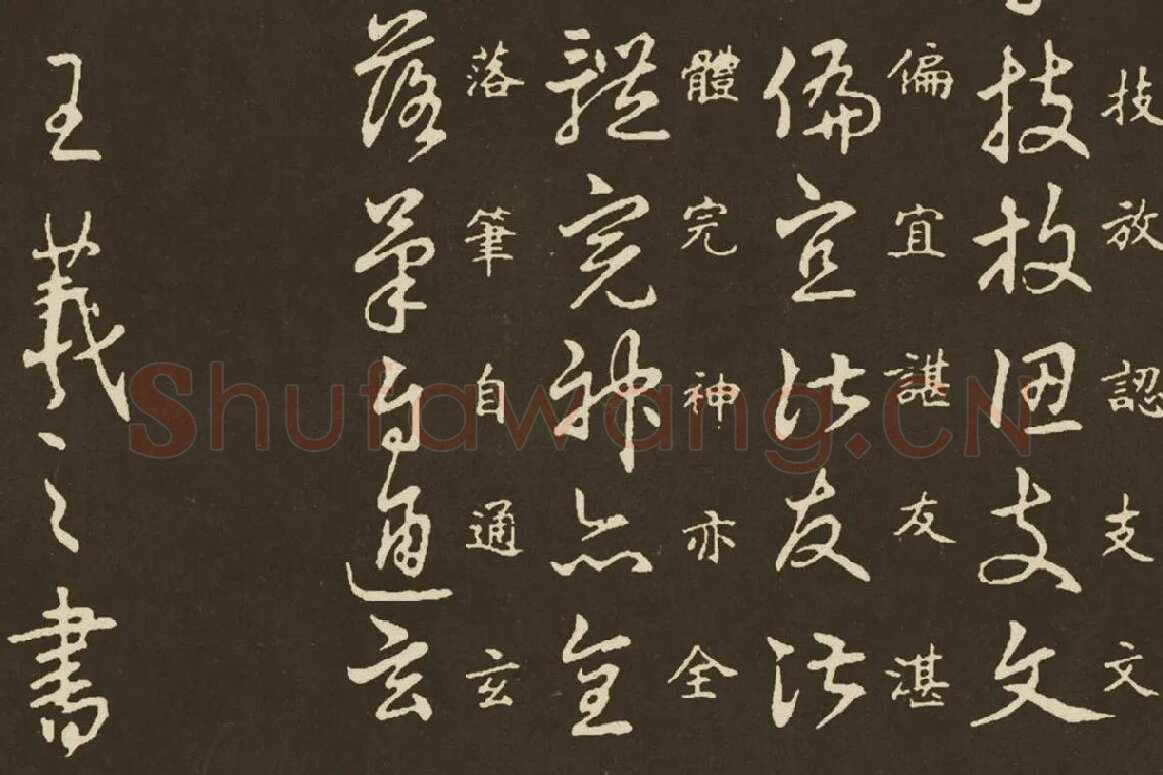 技放認支文
技放認支文
偏宜諶友湛
偏宜諶友湛
體完神亦全
體完神亦全
落筆自通玄
落筆自通玄
王羲之書
Shufawang.CN